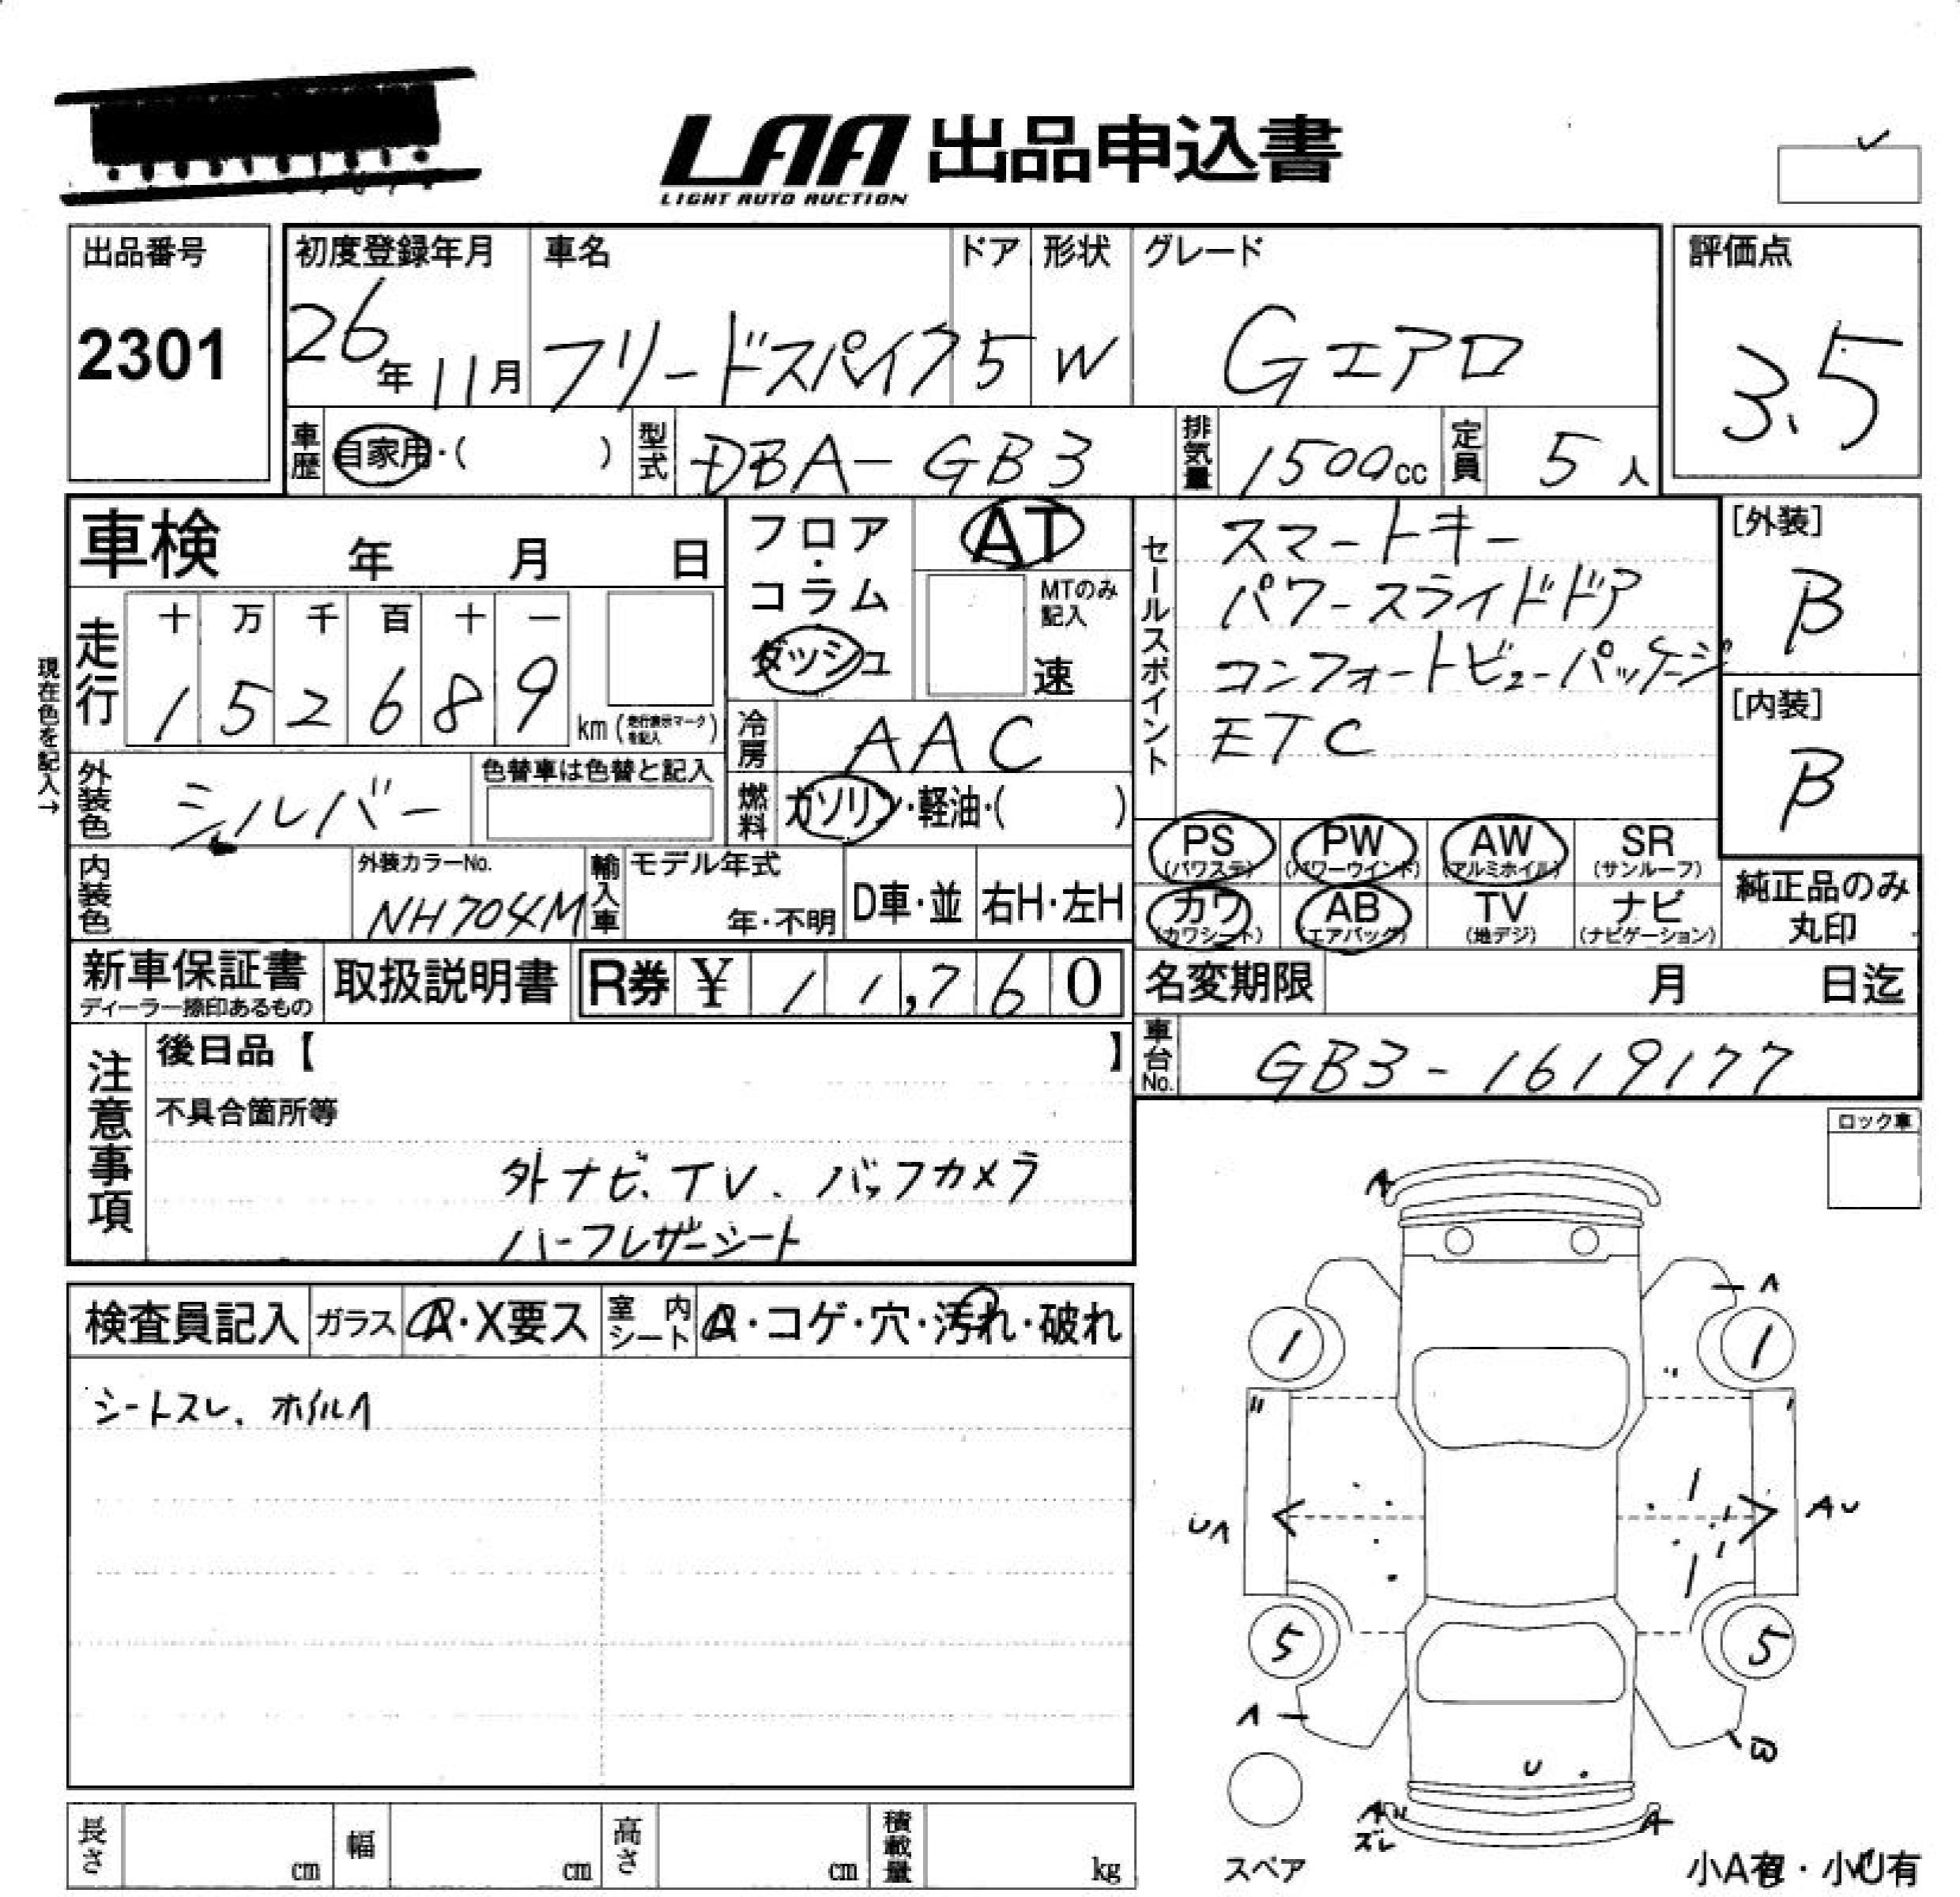 LAA 出品申込書
LIGHT AUTO AUCTION
出品番号
2301
初度登録年月 車名 ドア 形状 グレード
26年11月 フリードスパイク 5 W Gエアロ
評価点
3.5
車歴 自家用・( ) 型式 DBA-GB3 排気量 1500cc 定員 5人
車検 年 月 日
走行 十 万 千 百 十 一
1 5 2 6 8 9 km (走行表示マークを記入)
現在色を記入→
フロア・コラム
ダッシュ
AT
MTのみ記入
速
冷房 AAC
燃料 ガソリン・軽油・( )
セールスポイント
スマートキー
パワースライドドア
コンフォートビューパッケージ
ETC
[外装]
B
[内装]
B
外装色 シルバー
色替車は色替と記入
内装色
外装カラーNo.
NH704M
輸入車 モデル年式
年・不明 D車・並 右H・左H
PS (パワステ) PW (パワーウインド) AW (アルミホイル) SR (サンルーフ)
カワ (カワシート) AB (エアバッグ) TV (地デジ) ナビ (ナビゲーション)
純正品のみ
丸印
新車保証書
ディーラー捺印あるもの
取扱説明書 R券 ¥ 11,760
名変期限 月 日迄
車台No. GB3-1619177
注意事項
後日品【 】
不具合箇所等
外ナビ、TV、バックカメラ
ハーフレザーシート
ロック車
検査員記入 ガラス A・X要ス 室内シート A・コゲ・穴・汚れ・破れ
シートスレ、ホイルA
A
A
1 1
UA AU
5 5
A
B
U
A
ズレ
A
スペア
小A有・小U有
長さ cm 幅 cm 高さ cm 積載量 kg